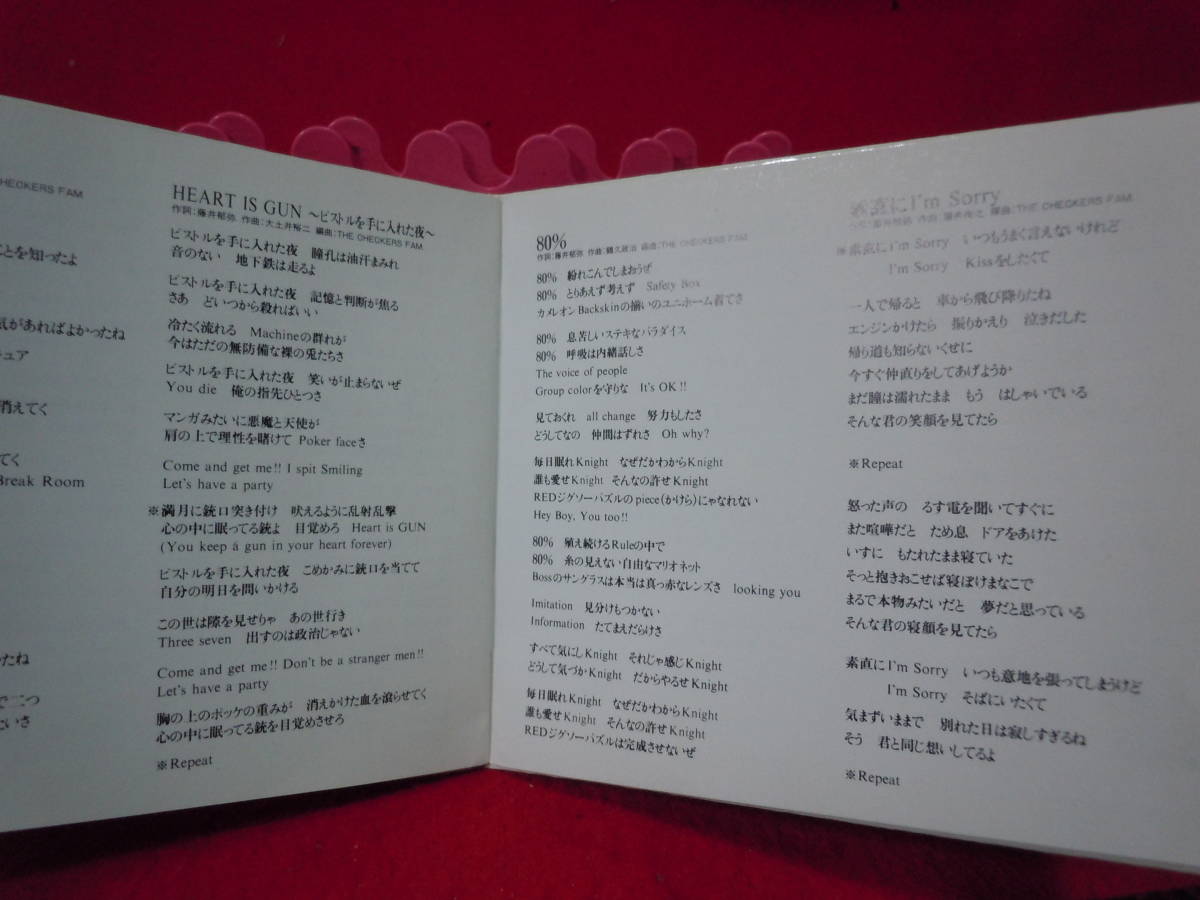 CHECKERS FAM.
ことを知ったよ
気があればよかったね
キュア
消えてく
てく
Break Room
たね
で二つ
たいさ
HEART IS GUN ～ピストルを手に入れた夜～
作詞：藤井郁弥 作曲：大土井裕二 編曲：THE CHECKERS FAM.
ピストルを手に入れた夜　瞳孔は油汗まみれ
音のない　地下鉄は走るよ
ピストルを手に入れた夜　記憶と判断が焦る
さあ　どいつから殺ればいい
冷たく流れる　Machineの群れが
今はただの無防備な裸の兎たちさ
ピストルを手に入れた夜　笑いが止まらないぜ
You die　俺の指先ひとつさ
マンガみたいに悪魔と天使が
肩の上で理性を賭けて Poker faceさ
Come and get me!! I spit Smiling
Let's have a party
※満月に銃口突き付け　吠えるように乱射乱撃
心の中に眠ってる銃よ　目覚めろ　Heart is GUN
(You keep a gun in your heart forever)
ピストルを手に入れた夜　こめかみに銃口を当てて
自分の明日を問いかける
この世は隙を見せりゃ　あの世行き
Three seven　出すのは政治じゃない
Come and get me!! Don't be a stranger men!!
Let's have a party
胸の上のポッケの重みが　消えかけた血を滾らせてく
心の中に眠ってる銃を目覚めさせろ
※Repeat
80%
作詞：藤井郁弥 作曲：鶴久政治 編曲：THE CHECKERS FAM.
80%　紛れこんでしまおうぜ
80%　とりあえず考えず　Safety Box
カメレオンBackskinの揃いのユニホーム着てさ
80%　息苦しいステキなパラダイス
80%　呼吸は内緒話しさ
The voice of people
Group colorを守りな　It's OK!!
見ておくれ　all change　努力もしたさ
どうしてなの　仲間はずれさ　Oh why?
毎日眠れKnight　なぜだかわからKnight
誰も愛せKnight　そんなの許せKnight
REDジグソーパズルのpiece(かけら)にゃなれない
Hey Boy, You too!!
80%　殖え続けるRuleの中で
80%　糸の見えない自由なマリオネット
Bossのサングラスは本当は真っ赤なレンズさ　looking you
Imitation　見分けもつかない
Information　たてまえだらけさ
すべて気にしKnight　それじゃ感じKnight
どうして気づかKnight　だからやるせKnight
毎日眠れKnight　なぜだかわからKnight
誰も愛せKnight　そんなの許せKnight
REDジグソーパズルは完成させないぜ
素直にI'm Sorry
作詞：藤井郁弥 作曲：藤井尚之 編曲：THE CHECKERS FAM.
※素直にI'm Sorry　いつもうまく言えないけれど
I'm Sorry　Kissをしたくて
一人で帰ると　車から飛び降りたね
エンジンかけたら　振りかえり　泣きだした
帰り道も知らないくせに
今すぐ仲直りをしてあげようか
まだ瞳は濡れたまま　もう　はしゃいでいる
そんな君の笑顔を見てたら
※Repeat
怒った声の　るす電を聞いてすぐに
また喧嘩だと　ため息　ドアをあけた
いすに　もたれたまま寝ていた
そっと抱きおこせば寝ぼけまなこで
まるで本物みたいだと　夢だと思っている
そんな君の寝顔を見てたら
素直にI'm Sorry　いつも意地を張ってしまうけど
I'm Sorry　そばにいたくて
気まずいままで　別れた日は寂しすぎるね
そう　君と同じ想いしてるよ
※Repeat